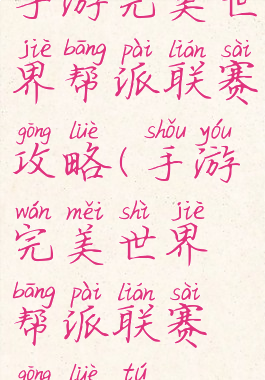 手游完美世
jiè bāng pài lián sài
界帮派联赛
gōng lüè shǒu yóu
攻略(手游
wán měi shì jiè
完美世界
bāng pài lián sài
帮派联赛
gōng lüè tú